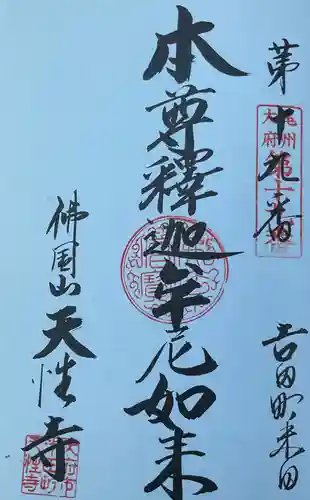 第十九番
吉田町来田
本尊釋迦牟尼如来
佛国山天性寺